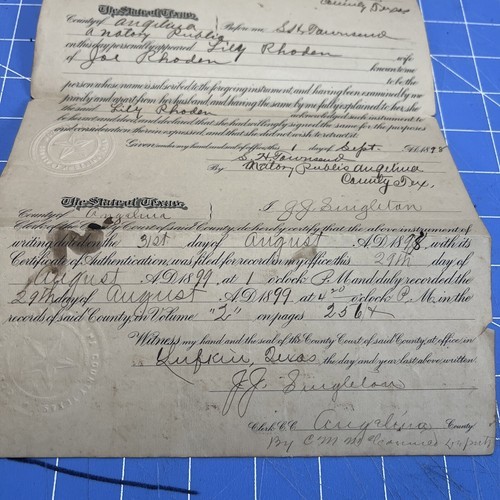 County Texas
The State of Texas,
County of Angelina Before me S. H. Townsend
a Notary Public
on this day personally appeared Lily Rhoden
wife
of Joe Rhoden known to me
to be the
person whose name is subscribed to the foregoing instrument, and having been examined by me
privily and apart from her husband, and having the same by me fully explained to her, she
the said Lily Rhoden acknowledged such instrument to
be her act and deed, and declared that she had willingly signed the same for the purposes
and consideration therein expressed, and that she did not wish to retract it.
Given under my hand and seal of office, this 1 day of Sept A.D. 1898
S. H. Townsend
By Notary Public Angelina
County Tex.
The State of Texas,
County of Angelina I J. J. Singleton
Clerk of the County Court of said County, do hereby certify that the above instrument of
writing dated on the 31st day of August A.D. 1898, with its
Certificate of Authentication, was filed for record in my office this 29th day of
August A.D. 1899, at 1 o'clock P. M. and duly recorded the
29th day of August A.D. 1899 at 4 20 o'clock P. M. in the
records of said County, in Volume "2" on pages 256 +
Witness my hand and the seal of the County Court of said County, at office in
Lufkin Texas the day and year last above written.
J. J. Singleton
Clerk C. C. Angelina County
By C. M. Deputy